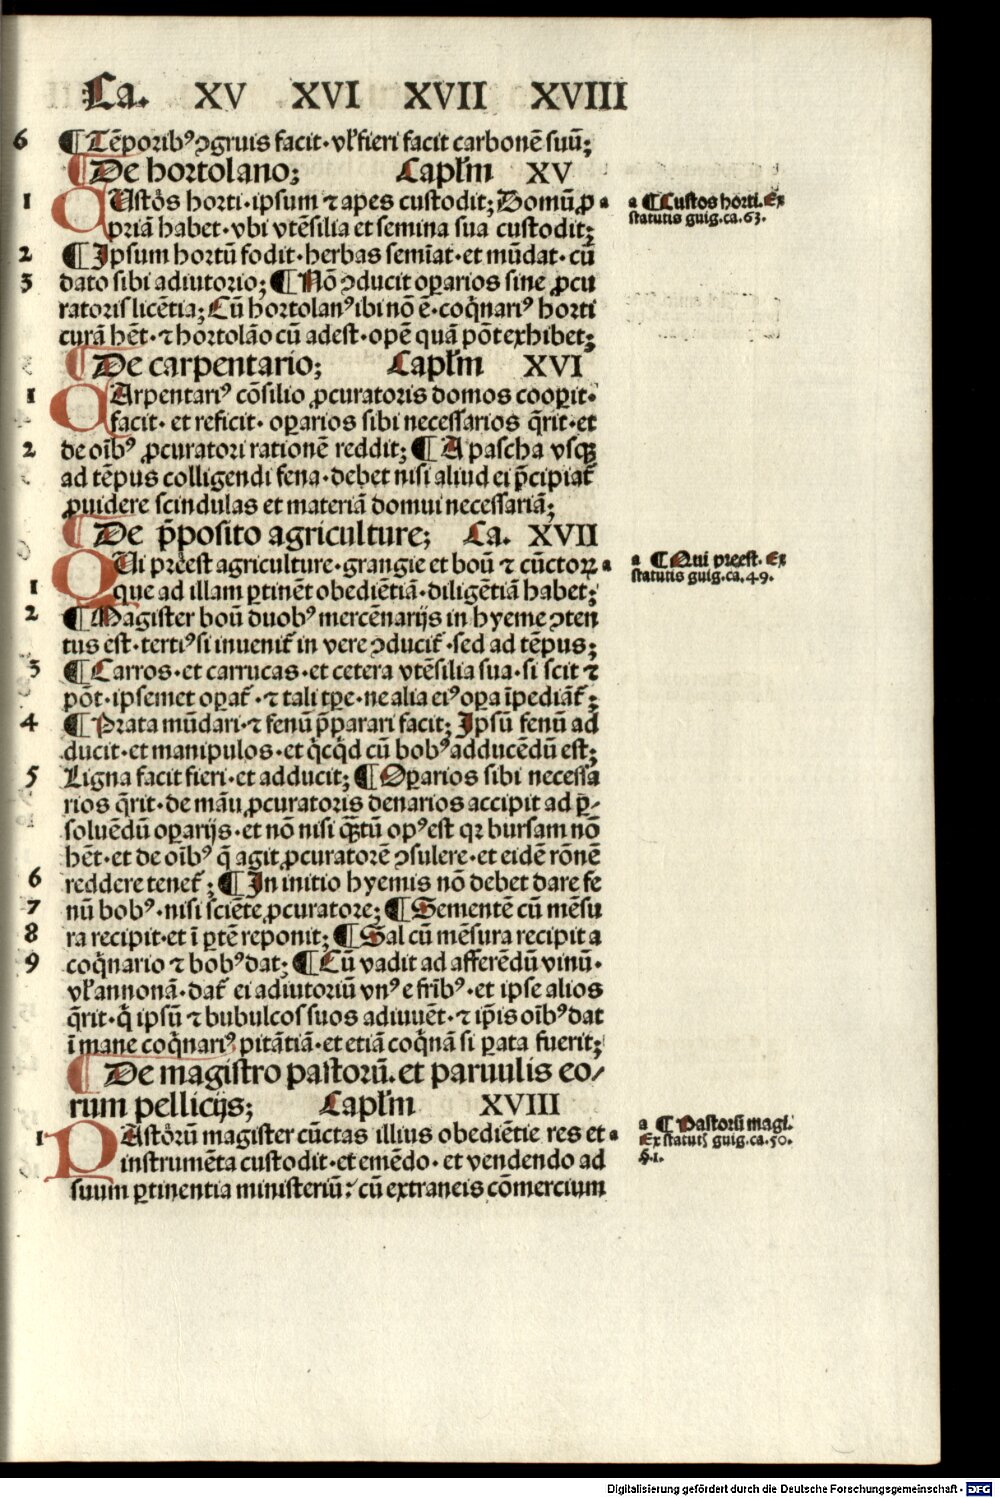 Ca. XV XVI XVII XVIII
6 ¶ Tēporibꝰ ↄgruis facit · vľ fieri facit carbonē suū;
¶ De hortolano; Caplm̄ XV
1 CUstōs horti · ipsum ⁊ apes custodit; Domū ꝓ · a ¶ Custos horti. Ex
priā habet · vbi vtēsilia et semina sua custodit; statutis guig. ca. 63.
2 ¶ Ipsum hortū fodit · herbas semīat · et mūdat · cū
3 dato sibi adiutorio; ¶ Nō ↄducit oꝑarios sine ꝓcu
ratoris licētia; Cū hortolanꝰ ibi nō ē · coq̄nariꝰ horti
curā hēt · ⁊ hortolāo cū adest · opē quā pōt exhibet;
¶ De carpentario; Caplm̄ XVI
1 CArpentariꝰ cōsilio ꝓcuratoris domos cooꝑit ·
facit · et reficit · oꝑarios sibi necessarios q̄rit · et
2 de oībꝰ ꝓcuratori rationē reddit; ¶ A pascha vsqꝫ
ad tēpus colligendi fena · debet nisi aliud ei p̄cipiat᷑
ꝓuidere scindulas et materiā domui necessariā;
¶ De p̄posito agriculture; Ca. XVII
QUi preest agriculture · grangie et boū ⁊ cūctoꝝ · a ¶ Qui preest. Ex
1 que ad illam ꝑtinēt obediētiā · diligētiā habet; statutis guig. ca. 49.
2 ¶ Magister boū duobꝰ mercēnarijs in hyeme ↄten
tus est · tertiꝰ si inuenit᷑ in vere ↄducit᷑ · sed ad tēpus;
3 ¶ Carros · et carrucas · et cetera vtēsilia sua · si scit ⁊
pōt · ipsemet oꝑat᷑ · ⁊ tali tꝑe · ne alia eiꝰ oꝑa īpediāt᷑;
4 ¶ Prata mūdari · ⁊ fenū p̄parari facit; Ipsū fenū ad
ducit · et manipulos · et q̇cq̇d cū bobꝰ adducēdū est;
5 Ligna facit fieri · et adducit; ¶ Oꝑarios sibi necessa
rios q̄rit · de māu ꝓcuratoris denarios accipit ad ꝑ-
soluēdū oꝑarijs · et nō nisi q̄tū opꝰ est qꝛ bursam nō
hēt · et de oībꝰ q̄ agit ꝓcuratorē ↄsulere · et eidē rōnē
6 reddere tenet᷑; ¶ In initio hyemis nō debet dare fe
7 nū bobꝰ · nisi sciēte ꝓcuratore; ¶ Sementē cū mēsu
8 ra recipit · et ī ꝑtē reponit; ¶ Sal cū mēsura recipit a
9 coq̄nario ⁊ bobꝰ dat; ¶ Cū vadit ad afferēdū vinū ·
vľ annonā · dat᷑ ei adiutoriū vnꝰ e fr̄ibꝰ · et ipse alios
q̄rit · q̇ ipsū ⁊ bubulcos suos adiuuēt · ⁊ ip̄is oībꝰ dat
ī mane coq̄nariꝰ pitātiā · et etiā coq̄nā si ꝑata fuerit;
¶ De magistro pastorū. et paruulis eo-
rum pellicijs; Caplm̄ XVIII
1 PAstōrū magister cūctas illius obediētie res et · a ¶ Pastorū magi.
instrumēta custodit · et emēdo · et vendendo ad Ex statutꝭ guig. ca. 50.
§. 1.
suum ꝑtinentia ministeriū: cū extraneis cōmercium
Digitalisierung gefördert durch die Deutsche Forschungsgemeinschaft - DFG